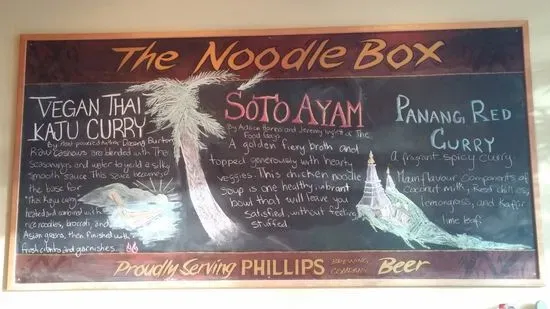 The Noodle Box
VEGAN THAI
KAJU CURRY
By Plant-powered Author Dreena Burton
Raw cashews are blended with Thai
seasonings and water to yield a silky
"smooth" sauce. This sauce becomes
the base for
This Kaju curry
heated and combined with
rice noodles, broccoli, and
Asian greens, then finished with
fresh cilantro and garnishes.
SOTO AYAM
By Adrian Harris and Jeremy Inglett of The
Food Gays
A golden fiery broth and
topped generously with hearty
veggies. This chicken noodle
soup is one healthy, vibrant
bowl that will leave you
satisfied, without feeling
stuffed
PANANG RED
CURRY
a fragrant spicy curry
Main flavour components of
Coconut milk, Red chilies,
lemongrass, and Kaffir
lime leaf.
Proudly Serving PHILLIPS BREWING COMPANY Beer